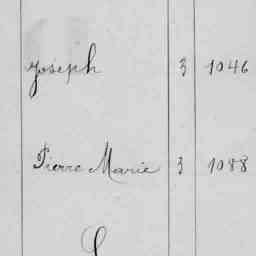 Joseph 3 1046
Pierre Marie 3 1088
L